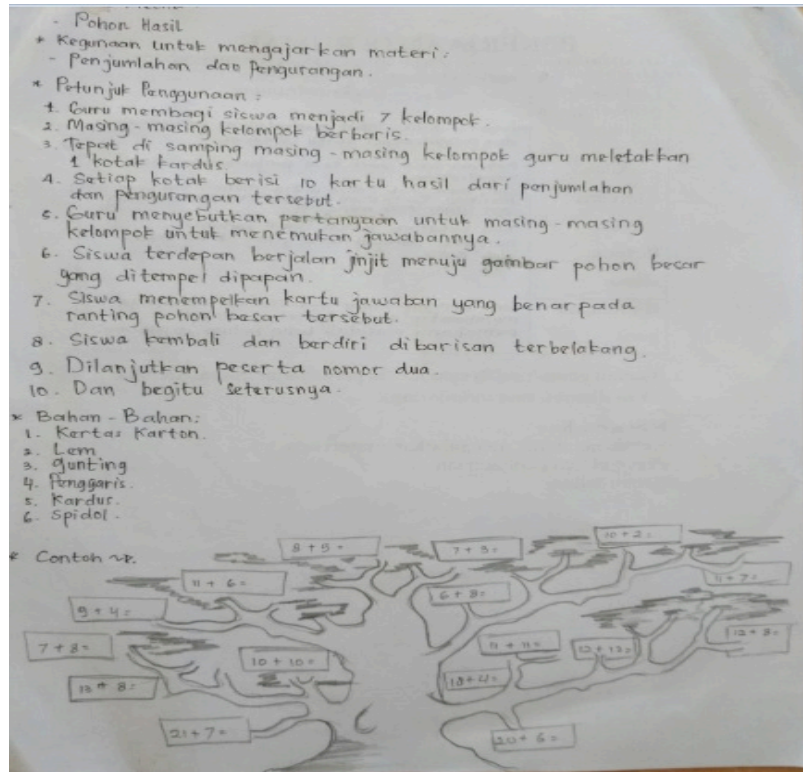 - Pohon Hasil
* Kegunaan untuk mengajarkan materi:
- Penjumlahan dan Pengurangan.
* Petunjuk Penggunaan :
1. Guru membagi siswa menjadi 7 kelompok.
2. Masing - masing kelompok berbaris.
3. Tepat di samping masing - masing kelompok guru meletakkan
1 kotak kardus.
4. Setiap kotak berisi 10 kartu hasil dari penjumlahan
dan pengurangan tersebut.
5. Guru menyebutkan pertanyaan untuk masing - masing
kelompok untuk menemukan jawabannya.
6. Siswa terdepan berjalan jinjit menuju gambar pohon besar
yang ditempel dipapan.
7. Siswa menempelkan kartu jawaban yang benar pada
ranting pohon besar tersebut.
8. Siswa kembali dan berdiri dibarisan terbelakang.
9. Dilanjutkan peserta nomor dua.
10. Dan begitu seterusnya.
* Bahan - Bahan:
1. Kertas Karton.
2. Lem
3. gunting
4. Penggaris.
5. Kardus.
6. Spidol.
* Contoh
8 + 5 =
7 + 5 =
10 + 2 =
11 + 6 =
6 + 8 =
11 + 7 =
9 + 4 =
7 + 8 =
10 + 10 =
11 + 11 =
12 + 12 =
12 + 8 =
13 + 8 =
18 + 4 =
21 + 7 =
20 + 6 =